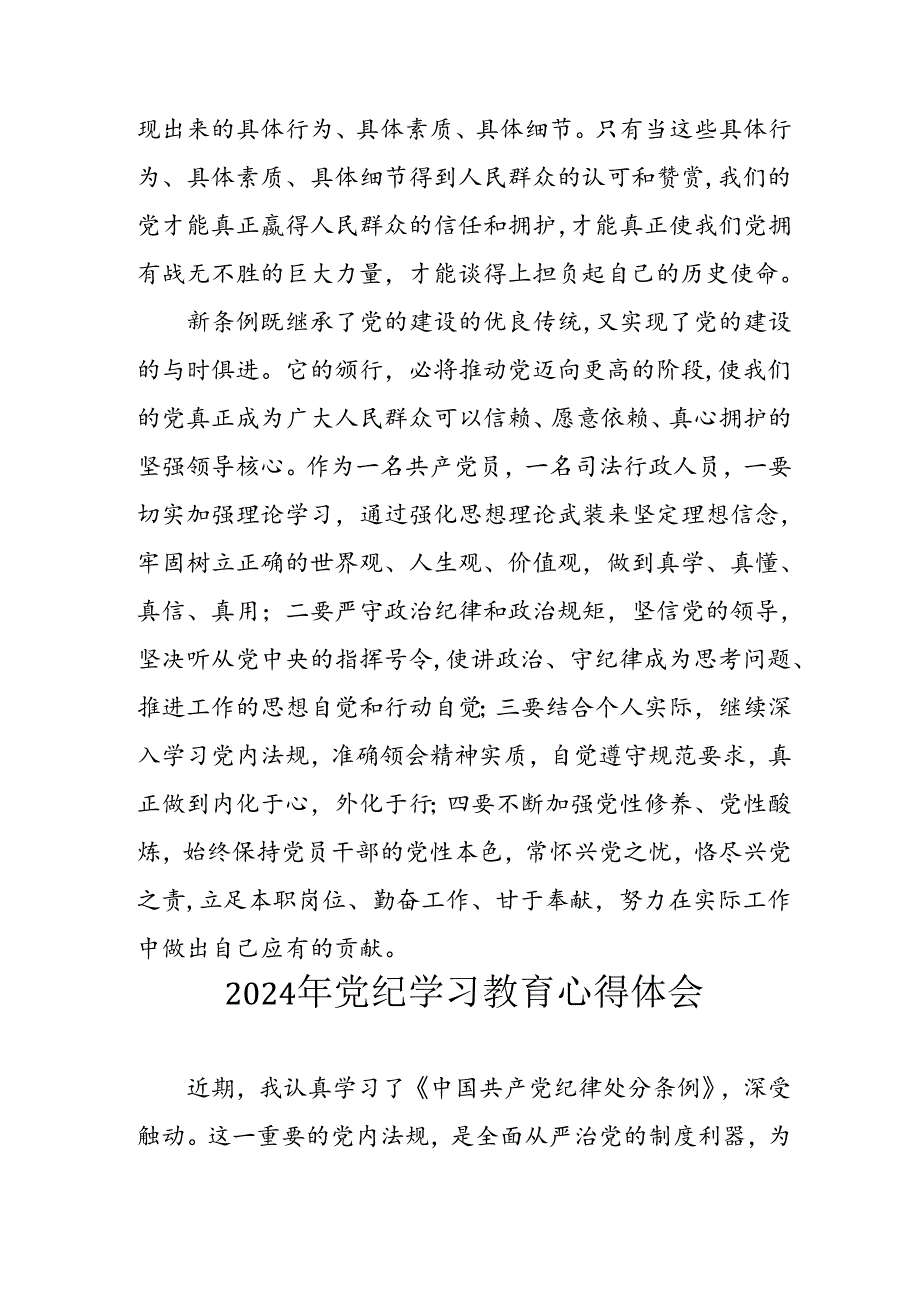 现出来的具体行为、具体素质、具体细节。只有当这些具体行
为、具体素质、具体细节得到人民群众的认可和赞赏,我们的
党才能真正赢得人民群众的信任和拥护,才能真正使我们党拥
有战无不胜的巨大力量，才能谈得上担负起自己的历史使命。
新条例既继承了党的建设的优良传统,又实现了党的建设
的与时俱进。它的颁行，必将推动党迈向更高的阶段,使我们
的党真正成为广大人民群众可以信赖、愿意依赖、真心拥护的
坚强领导核心。作为一名共产党员，一名司法行政人员，一要
切实加强理论学习，通过强化思想理论武装来坚定理想信念，
牢固树立正确的世界观、人生观、价值观，做到真学、真懂、
真信、真用；二要严守政治纪律和政治规矩，坚信党的领导，
坚决听从党中央的指挥号令,使讲政治、守纪律成为思考问题、
推进工作的思想自觉和行动自觉;三要结合个人实际，继续深
入学习党内法规，准确领会精神实质，自觉遵守规范要求，真
正做到内化于心，外化于行;四要不断加强党性修养、党性酸
炼，始终保持党员干部的党性本色，常怀兴党之忧，恪尽兴党
之责,立足本职岗位、勤奋工作、甘于奉献，努力在实际工作
中做出自己应有的贡献。
2024年党纪学习教育心得体会
近期，我认真学习了《中国共产党纪律处分条例》，深受
触动。这一重要的党内法规，是全面从严治党的制度利器，为